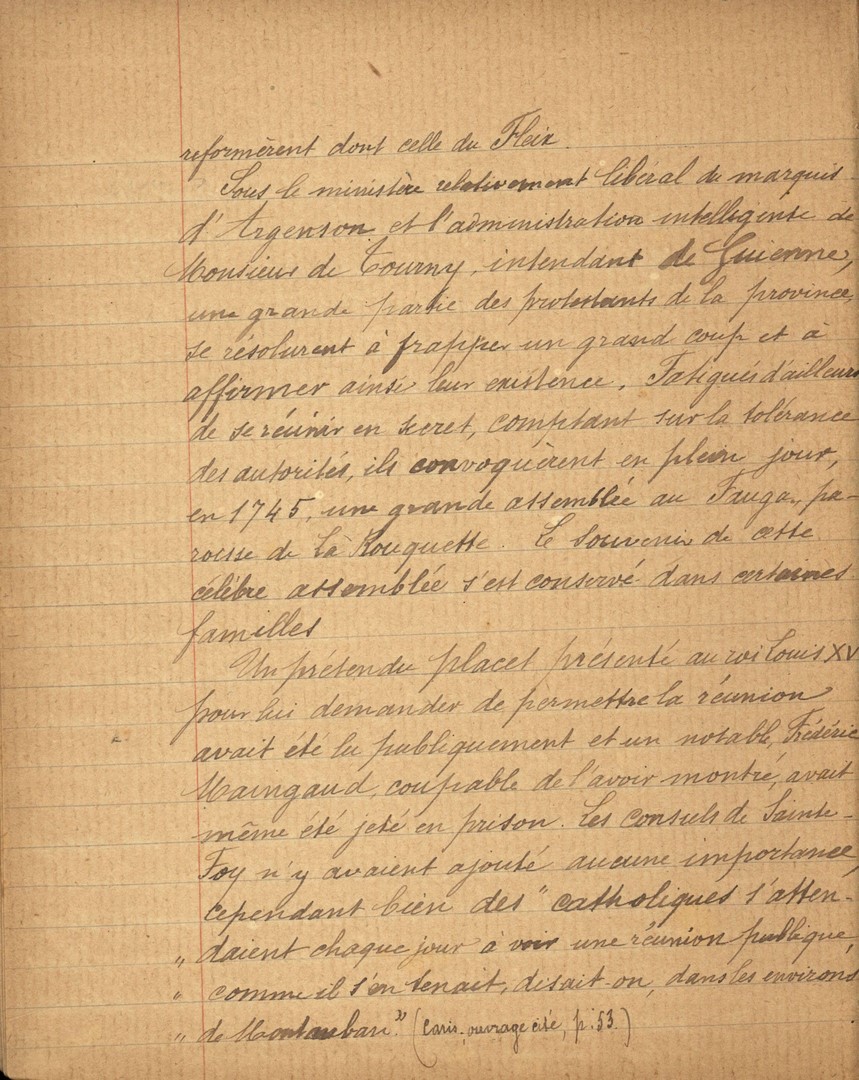 reformèrent dont celle du Fleix.
Sous le ministère relativement libéral du marquis
d'Argenson et l'administration intelligente de
Monsieur de Tourny, intendant de Guienne,
une grande partie des protestants de la province,
se résolurent à frapper un grand coup et à
affirmer ainsi leur existence. Fatigués d'ailleurs
de se réunir en secret, comptant sur la tolérance
des autorités, ils convoquèrent en plein jour,
en 1745, une grande assemblée au Fauga, pa-
roisse de La Rouquette. Le souvenir de cette
célèbre assemblée s'est conservé dans certaines
familles
Un prétendu placet présenté au roi Louis XV
pour lui demander de permettre la réunion
avait été lu publiquement et un notable, Frédéric
Maingaud, coupable de l'avoir montré, avait
même été jeté en prison. Les consuls de Sainte-
Foy n'y avaient ajouté aucune importance,
cependant bien des "catholiques s'atten-
„ daient chaque jour à voir une réunion publique,
„ comme il s'en tenait, disait-on, dans les environs
„ de Montauban." (ouvrage cité, p. 53.)